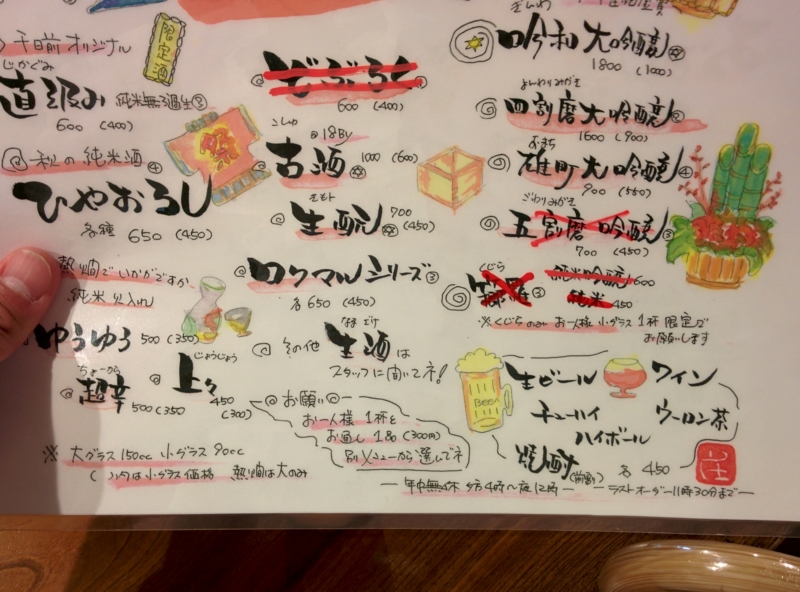 千日前オリジナル
じかぐみ
直汲み 純米無ろ過生
600 (400)
限定酒
秋の純米酒
祭
ひやおろし
各種 650 (450)
熱燗でいかがですか
純米 火入れ
ゆうゆう 500 (350)
ちょーから
超辛 500 (350
じょうじょう
上々 450
(300)
※ 大グラス 150cc 小グラス 90cc
( )内は小グラス価格 熱燗は大のみ
どぶろく
600 (400)
こしゅ
18By
古酒 1000 (600)
きもと
生酛 700
(450)
ロクマルシリーズ③
各650 (450)
その他
なまざけ
生酒は
スタッフに聞いてネ!
お願い
お一人様 1杯と
お通し 1品 (300円)
別メニューから選んでネ
ぎんわ
吟和 大吟醸
1800 (1000)
よんわりみがき
四割磨大吟醸
1600 (900)
おまち
雄町大吟醸
900 (550)
ごわりみがき
五割磨 吟醸
700 (450)
くじら
純米吟醸 600
純米 450
※くじらのみ お一人様 小グラス 1杯 限定で
お願いします
BEER
生ビール
ワイン
チューハイ
ウーロン茶
ハイボール
焼酎(前割) 各 450
荘
年中無休 夕方4時〜夜12時 ラストオーダー11時30分まで